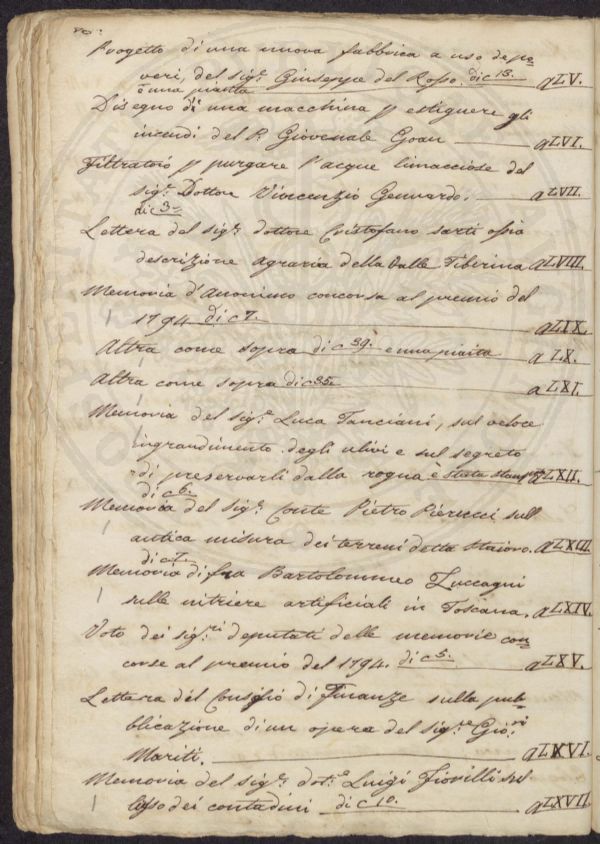 Progetto di una nuova fabbrica a uso de po=
veri, del sig.r Giuseppe del Rosso. di c 13. a LV.
è una pianta
Disegno di una macchina p estiguere gli
incendi del P. Giovenale Goan a LVI.
Filtratoio p purgare l'acque limacciose del
sig.r Dottore Vincenzio Gennardo. a LVII.
di c 3.
Lettera del sig.r dottore Cristofano Sarti ossia
descrizione agraria della Valle Tiberina a LVIII.
Memoria d'Anonimo concorsa al premio del
1794. di c 7. a LIX.
Altra come sopra di c 39. e una pianta a LX.
Altra come sopra di c 35. a LXI.
Memoria del sig.r Luca Tanciani, sul veloce
ingrandimento degli ulivi e sul segreto
di preservarli dalla rogna è stata stamp a LXII.
di c 6.
Memoria del sig.r Conte Pietro Pierucci sull
antica misura dei terreni detta Staioro. a LXIII.
di c 7.
Memoria di fra Bartolommeo Zuccagni
sulle nitriere artificiali in Toscana. a LXIV.
Voto dei sig.ri deputati delle memorie con=
corse al premio del 1794. di c 5. a LXV.
Lettera del Consiglio di Finanze sulla pub=
blicazione di un opera del sig.re Gio:
Mariti. a LXVI.
Memoria del sig.r dot.e Luigi Fiorilli sul
lusso dei contadini di c 10. a LXVII.